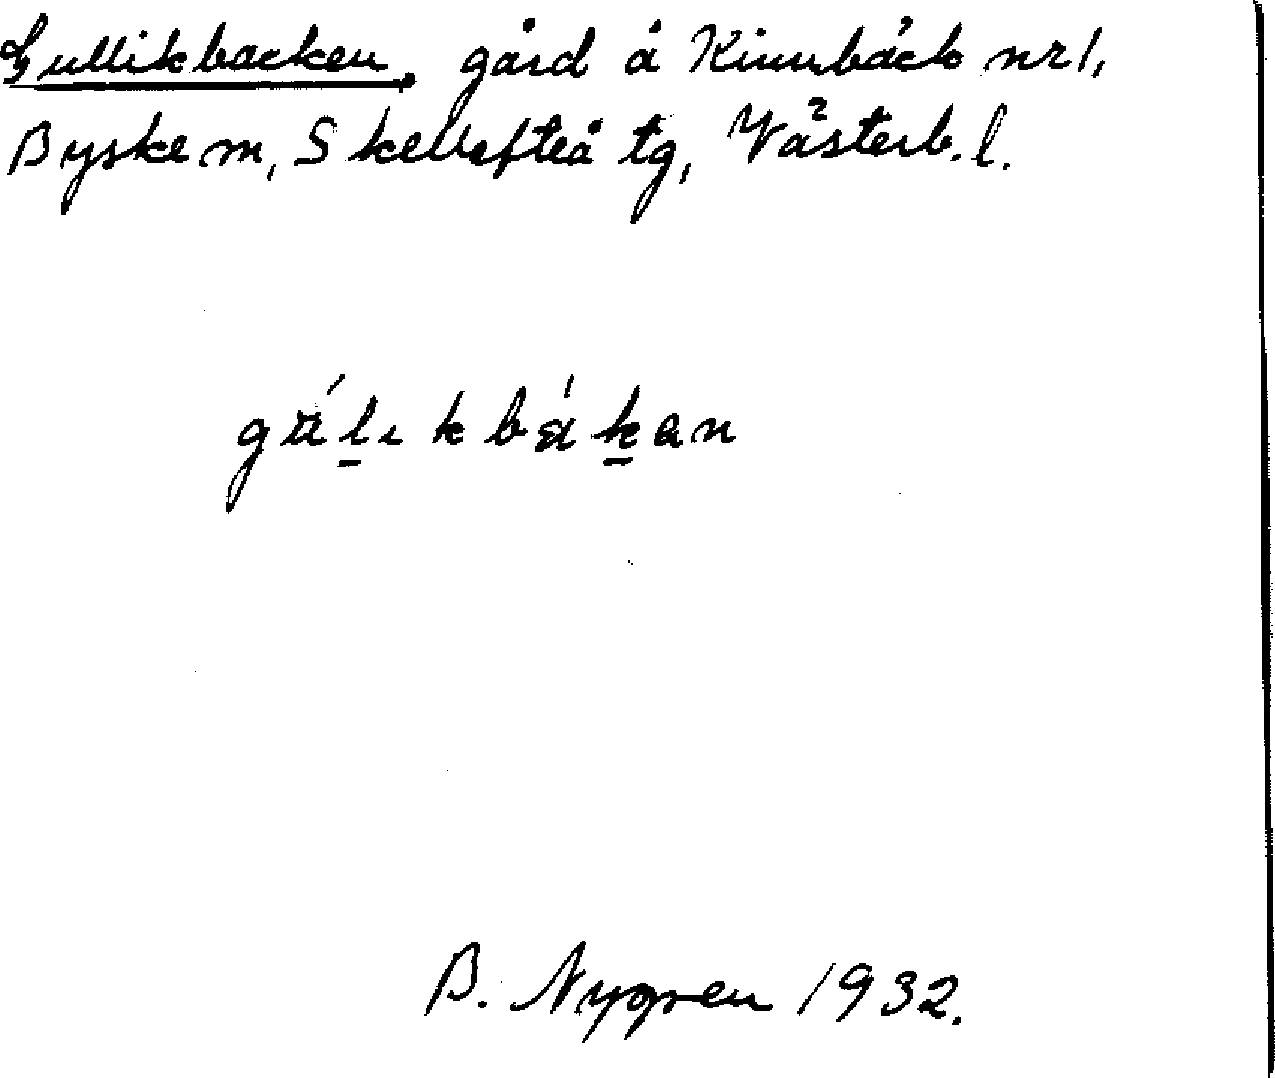 Gullikbacken, gård å Kinnbäck nr 1,
Byske m, Skellefteå tg, Västerb. l.
gǘlıkbákan
B. Nygren 1932.